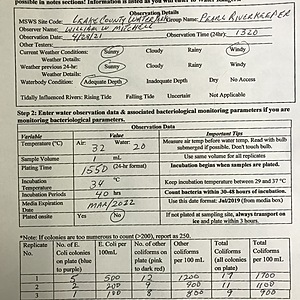 possible in notes sections! Information is listed as you will enter to
Observation Details
MSWS Site Code: Group Name: PEARL RIVERKEEPER
Observer Name: WILLIAM W MITCHELL
Observation Date: 4/28/21 Observation Time (24hr): 1320
Other Testers:
Current Weather Conditions: Sunny Cloudy Rainy Windy
Weather Details:
Weather previous 24-hr: Sunny Cloudy Rainy Windy
Weather Details:
Waterbody Condition: Adequate Depth Inadequate Depth Dry No Access
Tidally Influenced Rivers: Rising Tide Falling Tide Uncertain Not Applicable
Step 2: Enter water observation data & associated bacteriological monitoring parameters if you are
monitoring bacteriological parameters.
Observation Data
Variable Value Important Tips
Temperature (°C) Air: 32 Water: 20 Measure air temp before water temp. Read with bulb
submerged if possible. Don't touch bulb.
Sample Volume 1 mL Use same volume for all replicates
Plating Time 1550 (24-hr format) Incubation begins when samples are plated.
Incubation Temperature 34 °C Keep incubation temperature between 29 and 37 °C
Incubation Periods 40 hrs Count bacteria within 30-48 hours of incubation.
Media Expiration Date MAR/2022 Use this date format: Jul/2019 (from media box)
Plated onsite Yes No If not plated at sampling site, always transport on
ice and plate within 3 hours.
*Note: If colonies are too numerous to count (>200), report as 250.
Replicate No. No. of E. Coli colonies on plate (blue to purple) E. Coli per 100mL No. of other coliforms on plate (pink to dark red) Other Coliforms per 100 mL Total Coliforms (all colonies on plate) Total Coliforms per 100 mL
1 5 500 12 1200 17 1700
2 2 200 9 900 11 1100
3 1 100 8 800 9 900